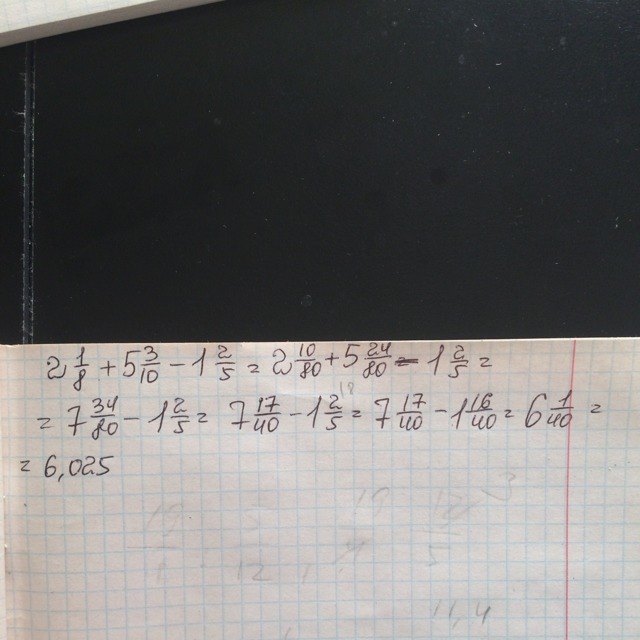 2 1/8 + 5 3/10 - 1 2/5 = 2 10/80 + 5 24/80 - 1 2/5 =
= 7 34/80 - 1 2/5 = 7 17/40 - 1 2/5 = 7 17/40 - 1 16/40 = 6 1/40 =
= 6,025